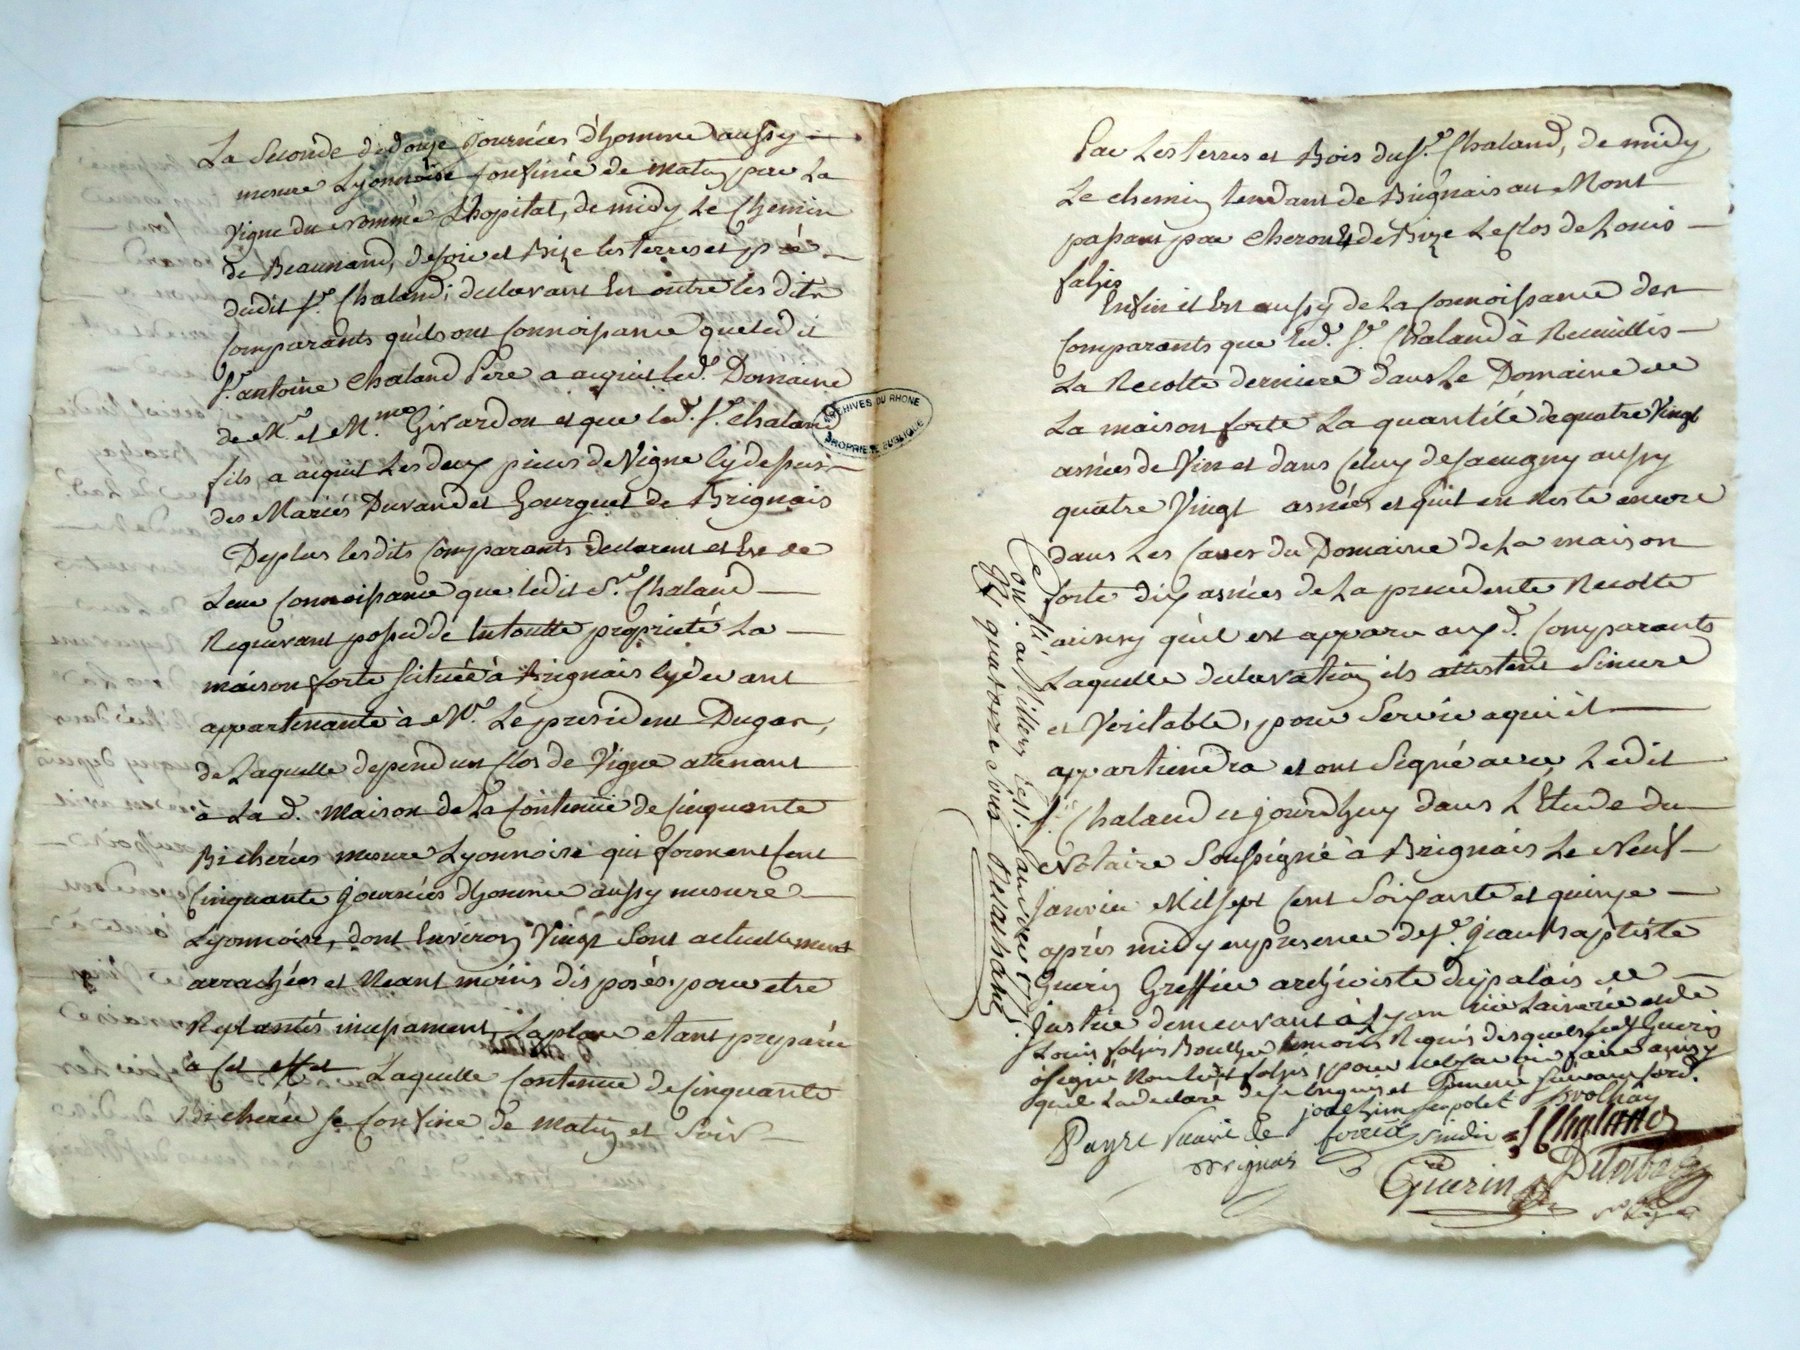 La Seconde de douze Journées d'homme aussy
mesure Lyonnoise confinée de matin par La
Vigne du nommé L'hopital, de midy Le Chemin
de Beaunand, de soir et Bize les terres et pré
dudit Sr. Chaland; declarant En outre lesdits
Comparants qu'ils ont Connoissance que ledit
Sr. antoine Chaland Pere a acquis led. Domaine
de Mr. et Mme Girardon et que led. Sr. Chaland
fils a acquit Les deux pieces de Vigne cy dessus
des Mariés Durand et Gourguet de Brignais
De plus lesdits Comparants declarent et Etre de
Leur Connoissance que ledit Sr. Chaland
Requerant possede En toutte proprieté La
maison forte scituée à Brignais cy devant
appartenante à Mr. Le president Dugas,
de Laquelle depend un Clos de Vigne attenant
à La d. maison de La Contenue de Cinquante
Bicherées mesure Lyonnoise qui forment Cent
Cinquante journées d'homme aussy mesure
Lyonnoise, dont Environ Vingt Sont actuellement
arrachées et Neant moins disposés pour etre
Replantés incessament, La place etant preparée
a Cet effet Laquelle Contenue de Cinquante
Bicherée se Confine de matin et Soir
ARCHIVES DU RHONE
PROPRIETE PUBLIQUE
Par Les terres et Bois du Sr. Chaland, de midy
Le chemin tendant de Brignais au Mont
passant par Cheron & de Bize Le Clos de Louis
falsis
Enfin il Est aussy de La Connoissance des
Comparants que led. Sr. Chaland à Recuillis
La Recolte derniere dans Le Domaine de
La maison forte La quantité de quatre Vingt
asnées de Vin et dans Celuy de Sacugny aussy
quatre Vingt asnées et qu'il en Reste encore
dans Les Caves du Domaine de La maison
forte dix asnées de La precedente Recolte
ainsy qu'il est apparu auxd. Comparants
Laquelle declaration ils attestent Sincere
et Veritable, pour Servir a qui il
appartiendra et ont Signé avec Ledit
Sr. Chaland ce jourd'huy dans L'Etude du
Notaire Soussigné à Brignais Le Neuf
Janvier Mil sept Cent Soixante et quinze
après midy en presence de Sr. Jean Baptiste
Guerin Greffier archiviste du palais de
Justice demeurant à Lyon et de
Louis falsis Boucher temoins Requis desquels led. Guerin
à signé Non led. falsis, pour ne sçavoir faire ainsy
qu'il La declaré de ce Enquis et Sommé suivant l'ord.
joachim serpolet Brolhay
Payre vicaire de forest sindic J Chaland
Brignais
Guerin Delorme
Conllé à Millery Le 11. Janvier 1775.
R. quatorze Sous Marchand